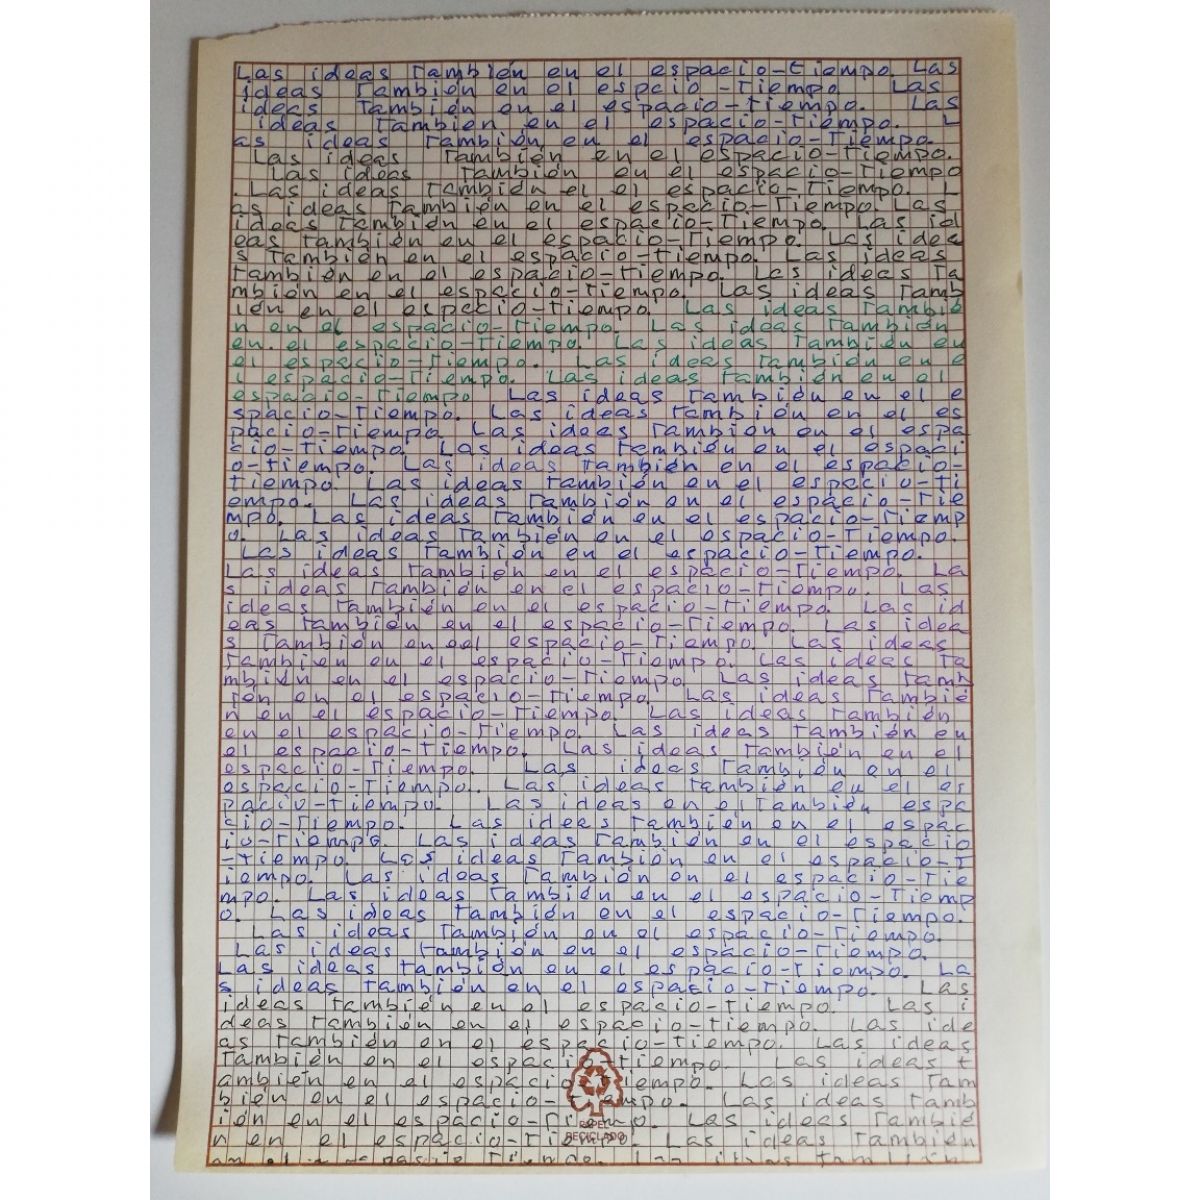 Las ideas también en el espacio-tiempo. Las
ideas también en el espcio-tiempo Las
ideas también en el espacio-tiempo. Las
ideas también en el espacio-tiempo. L
as ideas también en el espacio-tiempo.
Las ideas también en el espacio-tiempo.
Las ideas también en el espacio-tiempo
. Las ideas también el el espacio-tiempo. L
as ideas también en el espacio-tiempo Las
ideas también en el espacio-tiempo. Las id
eas también en el espacio-tiempo. Las idea
s también en el espacio-tiempo. Las ideas
también en el espacio-tiempo. Las ideas ta
mbién en el espacio-tiempo. Las ideas tamb
ién en el espacio-tiempo. Las ideas tambié
n en el espacio-tiempo. Las ideas también
en el espacio-tiempo. Las ideas también en
el espacio-tiempo. Las ideas también en e
l espacio-tiempo. Las ideas también en el
espacio-tiempo Las ideas también en el e
spacio-tiempo. Las ideas también en el es
pacio-tiempo Las ideas también en el espa
cio-tiempo. Las ideas también en el espaci
o-tiempo. Las ideas también en el espacio-
tiempo. Las ideas también en el espacio-ti
empo. Las ideas también en el espacio-tie
mpo. Las ideas también en el espacio-tiemp
o. Las ideas también en el espacio-tiempo.
Las ideas también en el espacio-tiempo.
Las ideas también en el espacio-tiempo. La
s ideas también en el espacio-tiempo. Las
ideas también en el espacio-tiempo. Las id
eas también en el espacio-tiempo. Las idea
s también en el espacio-tiempo. Las ideas
también en el espacio-tiempo. Las ideas ta
mbién en el espacio-tiempo. Las ideas tamb
ién en el espacio-tiempo. Las ideas tambié
n en el espacio-tiempo. Las ideas también
en el espacio-tiempo. Las ideas también en
el espacio-tiempo. Las ideas también en el
espacio-tiempo. Las ideas también en el
espacio-tiempo. Las ideas también en el es
pacio-tiempo. Las ideas en el también espa
cio-tiempo. Las ideas también en el espac
io-tiempo. Las ideas también en el espacio
-tiempo. Las ideas también en el espacio-t
iempo. Las ideas también en el espacio-tie
mpo. Las ideas también en el espacio-tiemp
o. Las ideas también en el espacio-tiempo.
Las ideas también en el espacio-tiempo.
Las ideas también en el espacio-tiempo.
Las ideas también en el espacio-tiempo. La
s ideas también en el espacio-tiempo. Las
ideas también en el espacio-tiempo. Las i
deas también en el espacio-tiempo. Las ide
as también en el espacio-tiempo. Las ideas
también en el espacio-tiempo. Las ideas t
ambién en el espacio-tiempo. Las ideas tam
bién en el espacio-tiempo. Las ideas tamb
ién en el espacio-tiempo. Las ideas tambié
n en el espacio-tiempo. Las ideas también
PAPEL
RECICLADO